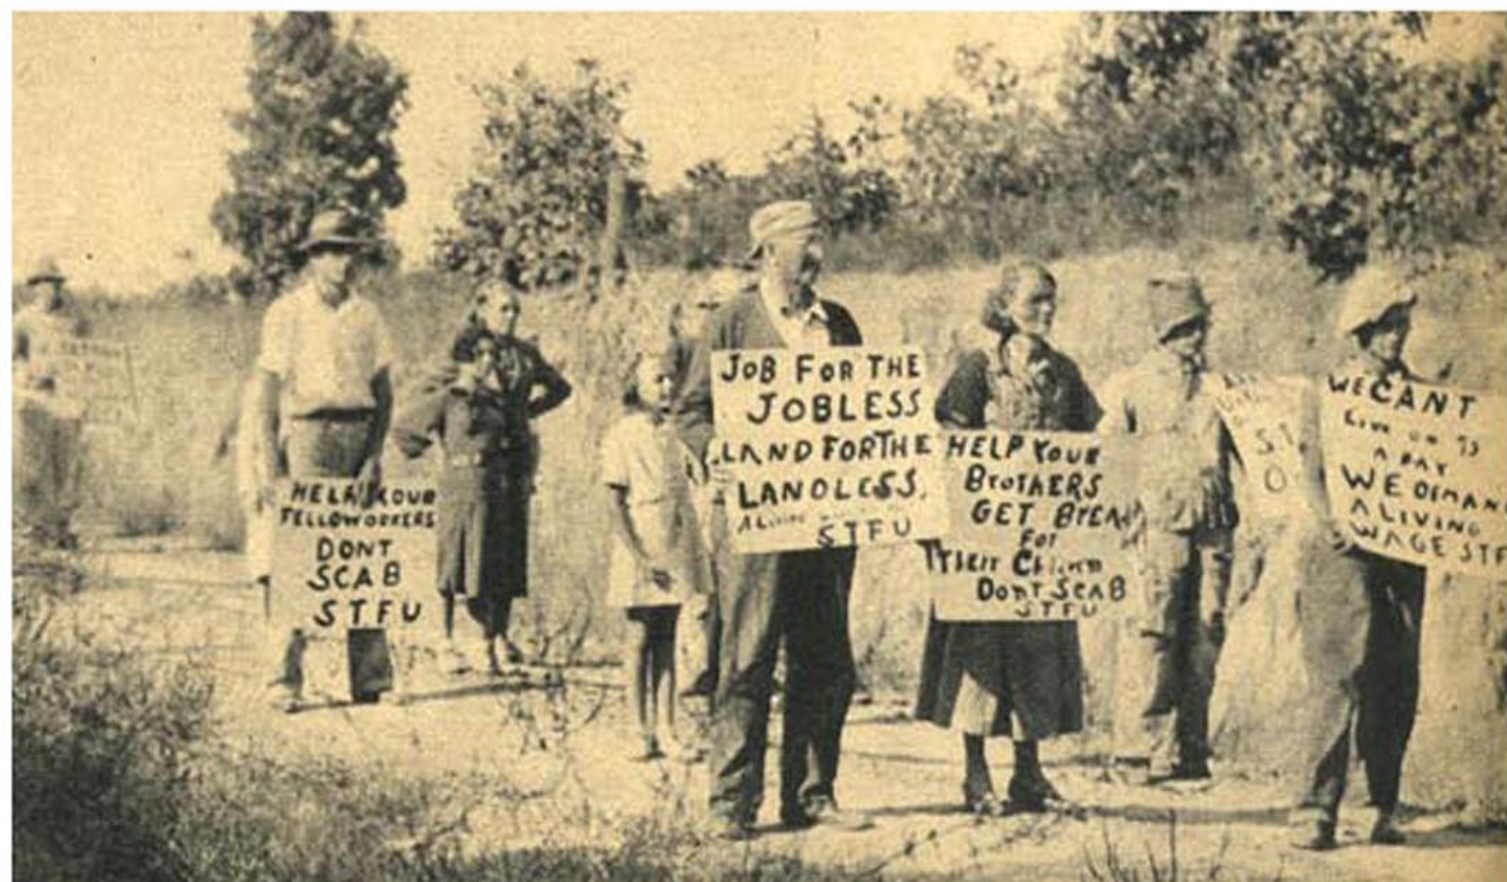 HELP YOUR
FELLOWORKERS
DONT
SCAB
STFU
JOB FOR THE
JOBLESS
LAND FOR THE
LANDLESS.
A Living
STFU
HELP YOUR
BroTHERS
GET BreA
For
THeir
DonT SCAB
STFU
WE CANT
Live on
A DAY
WE DEMAN
A LIVING
WAGE STF